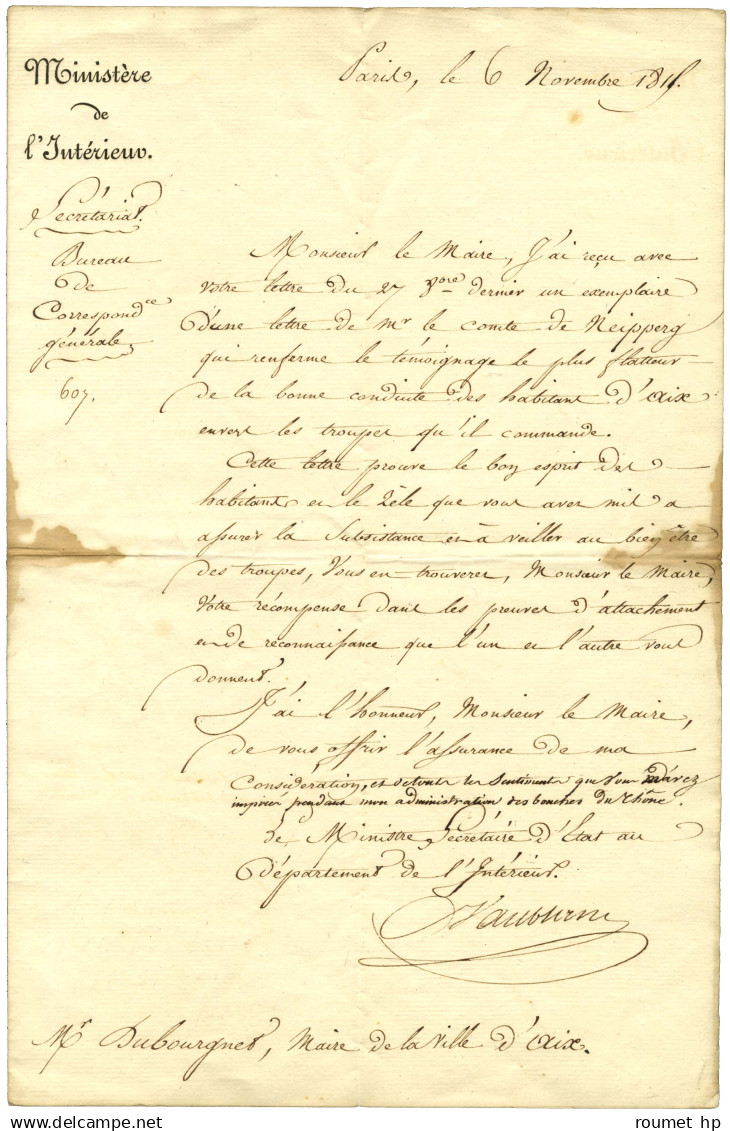 Ministère
de
l'Intérieur.
Secrétariat.
Bureau
de
Correspond.ce
générale
607.
Paris, le 6 Novembre 1815.
Monsieur le Maire, J'ai reçu avec
votre lettre du 27 8bre dernier un exemplaire
d'une lettre de Mr le comte de Neipperg
qui renferme le témoignage le plus flatteur
de la bonne conduite des habitans d'Aix
envers les troupes qu'il commande.
Cette lettre prouve le bon esprit des
habitans et le Zèle que vous avez mis a
assurer la Subsistance et à veiller au bien être
des troupes, Vous en trouverez, Monsieur le Maire,
Votre récompense dans les preuves d'attachement
et de reconnaissance que l'un et l'autre vous
donnent.
J'ai l'honneur, Monsieur le Maire,
de vous offrir l'assurance de ma
Considération, et de tous les Sentiments que vous m'avez
inspiré pendant mon administration des bouches du Rhône.
Le Ministre Secrétaire d'Etat au
département de l'Intérieur.
Vaublanc
Mr Dubourguet, Maire de la Ville d'Aix.
roumet hp